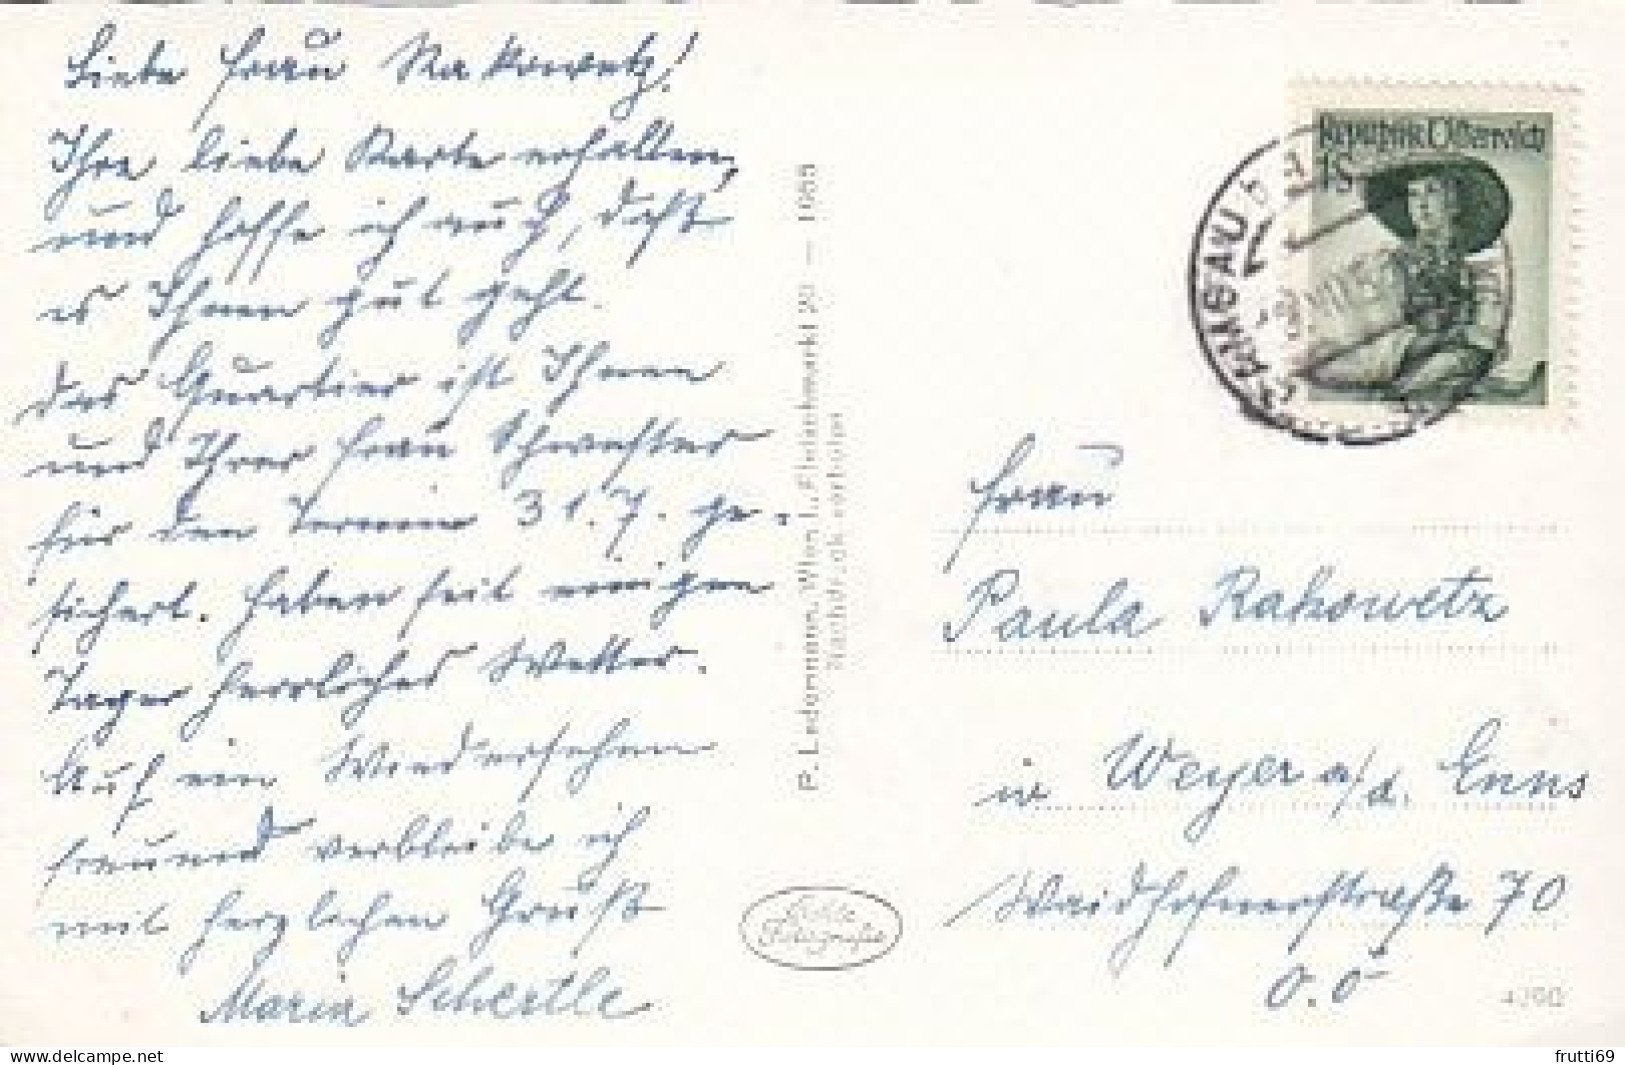 Liebe Frau Rakowetz!
Ihre liebe Karte erhalten,
und hoffe ich auch, daß
es Ihnen gut geht.
das Quartier ist Ihnen
und Ihrer Frau Schwester
für den Termin 31.7. ge-
sichert. Haben seit einigen
Tagen herrliches Wetter.
Auf ein Wiedersehen
freuend verbleibe ich
mit herzlichen Gruß
Maria Schertle
P. Ledermann, Wien I., Fleischmarkt 20 — 1955
Nachdruck verboten
Echte
Fotografie
Republik Österreich
1S
RAMSAU
Frau
Paula Rakowetz
in Weyer a/d. Enns
Waidhofnerstraße 70
O.Ö
4290
www.delcampe.net
frutti69